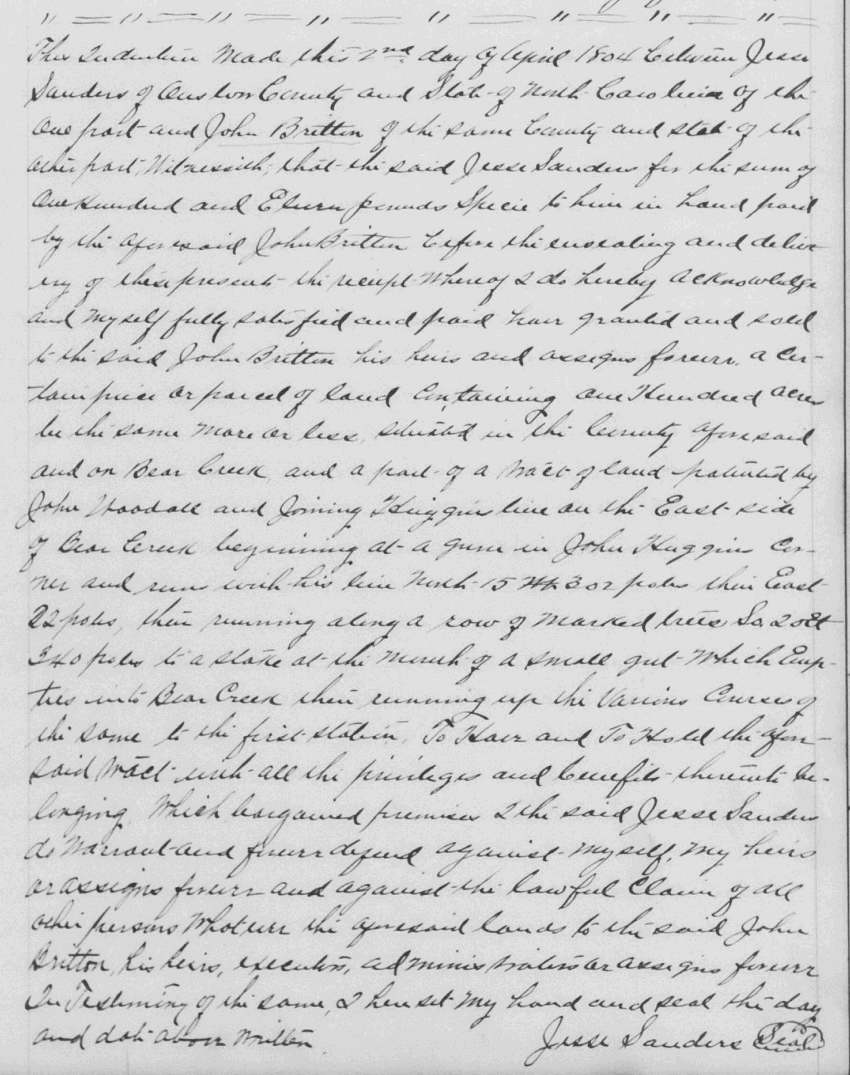 This Indenture Made this 2nd day of April 1804 between Jesse
Sanders of Onslow County and State of North Carolina of the
one part and John Britten of the same County and State of the
other part, Witnesseth, that the said Jesse Sanders for the sum of
One Hundred and Eleven pounds Specie to him in hand paid
by the aforesaid John Britten before the ensealing and deliv-
ery of these presents the receipt Whereof I do hereby acknowledge
and myself fully satisfied and paid have granted and sold
to the said John Britten his heirs and assigns forever, a cer-
tain piece or parcel of land Containing one Hundred acres
be the same More or less, situated in the County aforesaid
and on Bear Creek, and a part of a tract of land patented by
John Woodall and Joining Huggins line on the East side
of Bear Creek beginning at a gum in John Huggins Cor-
ner and runs with his line North 15 302 poles then East
22 poles, then running along a row of Marked trees So. 20
340 poles to a stake at the Mouth of a small gut Which Emp-
ties into Bear Creek then running up the Various Courses of
the same to the first station, To Have and To Hold the afore-
said tract with all the privileges and benefits thereunto be-
longing, Which bargained premises I the said Jesse Sanders
do Warrant and forever defend against Myself, My heirs
or assigns forever and against the lawful Claim of all
other persons Whatever the aforesaid lands to the said John
Britton, his heirs, executors, administrators or assigns forever
In Testimony of the same, I have set My hand and seal the day
and date above Written. Jesse Sanders Seal